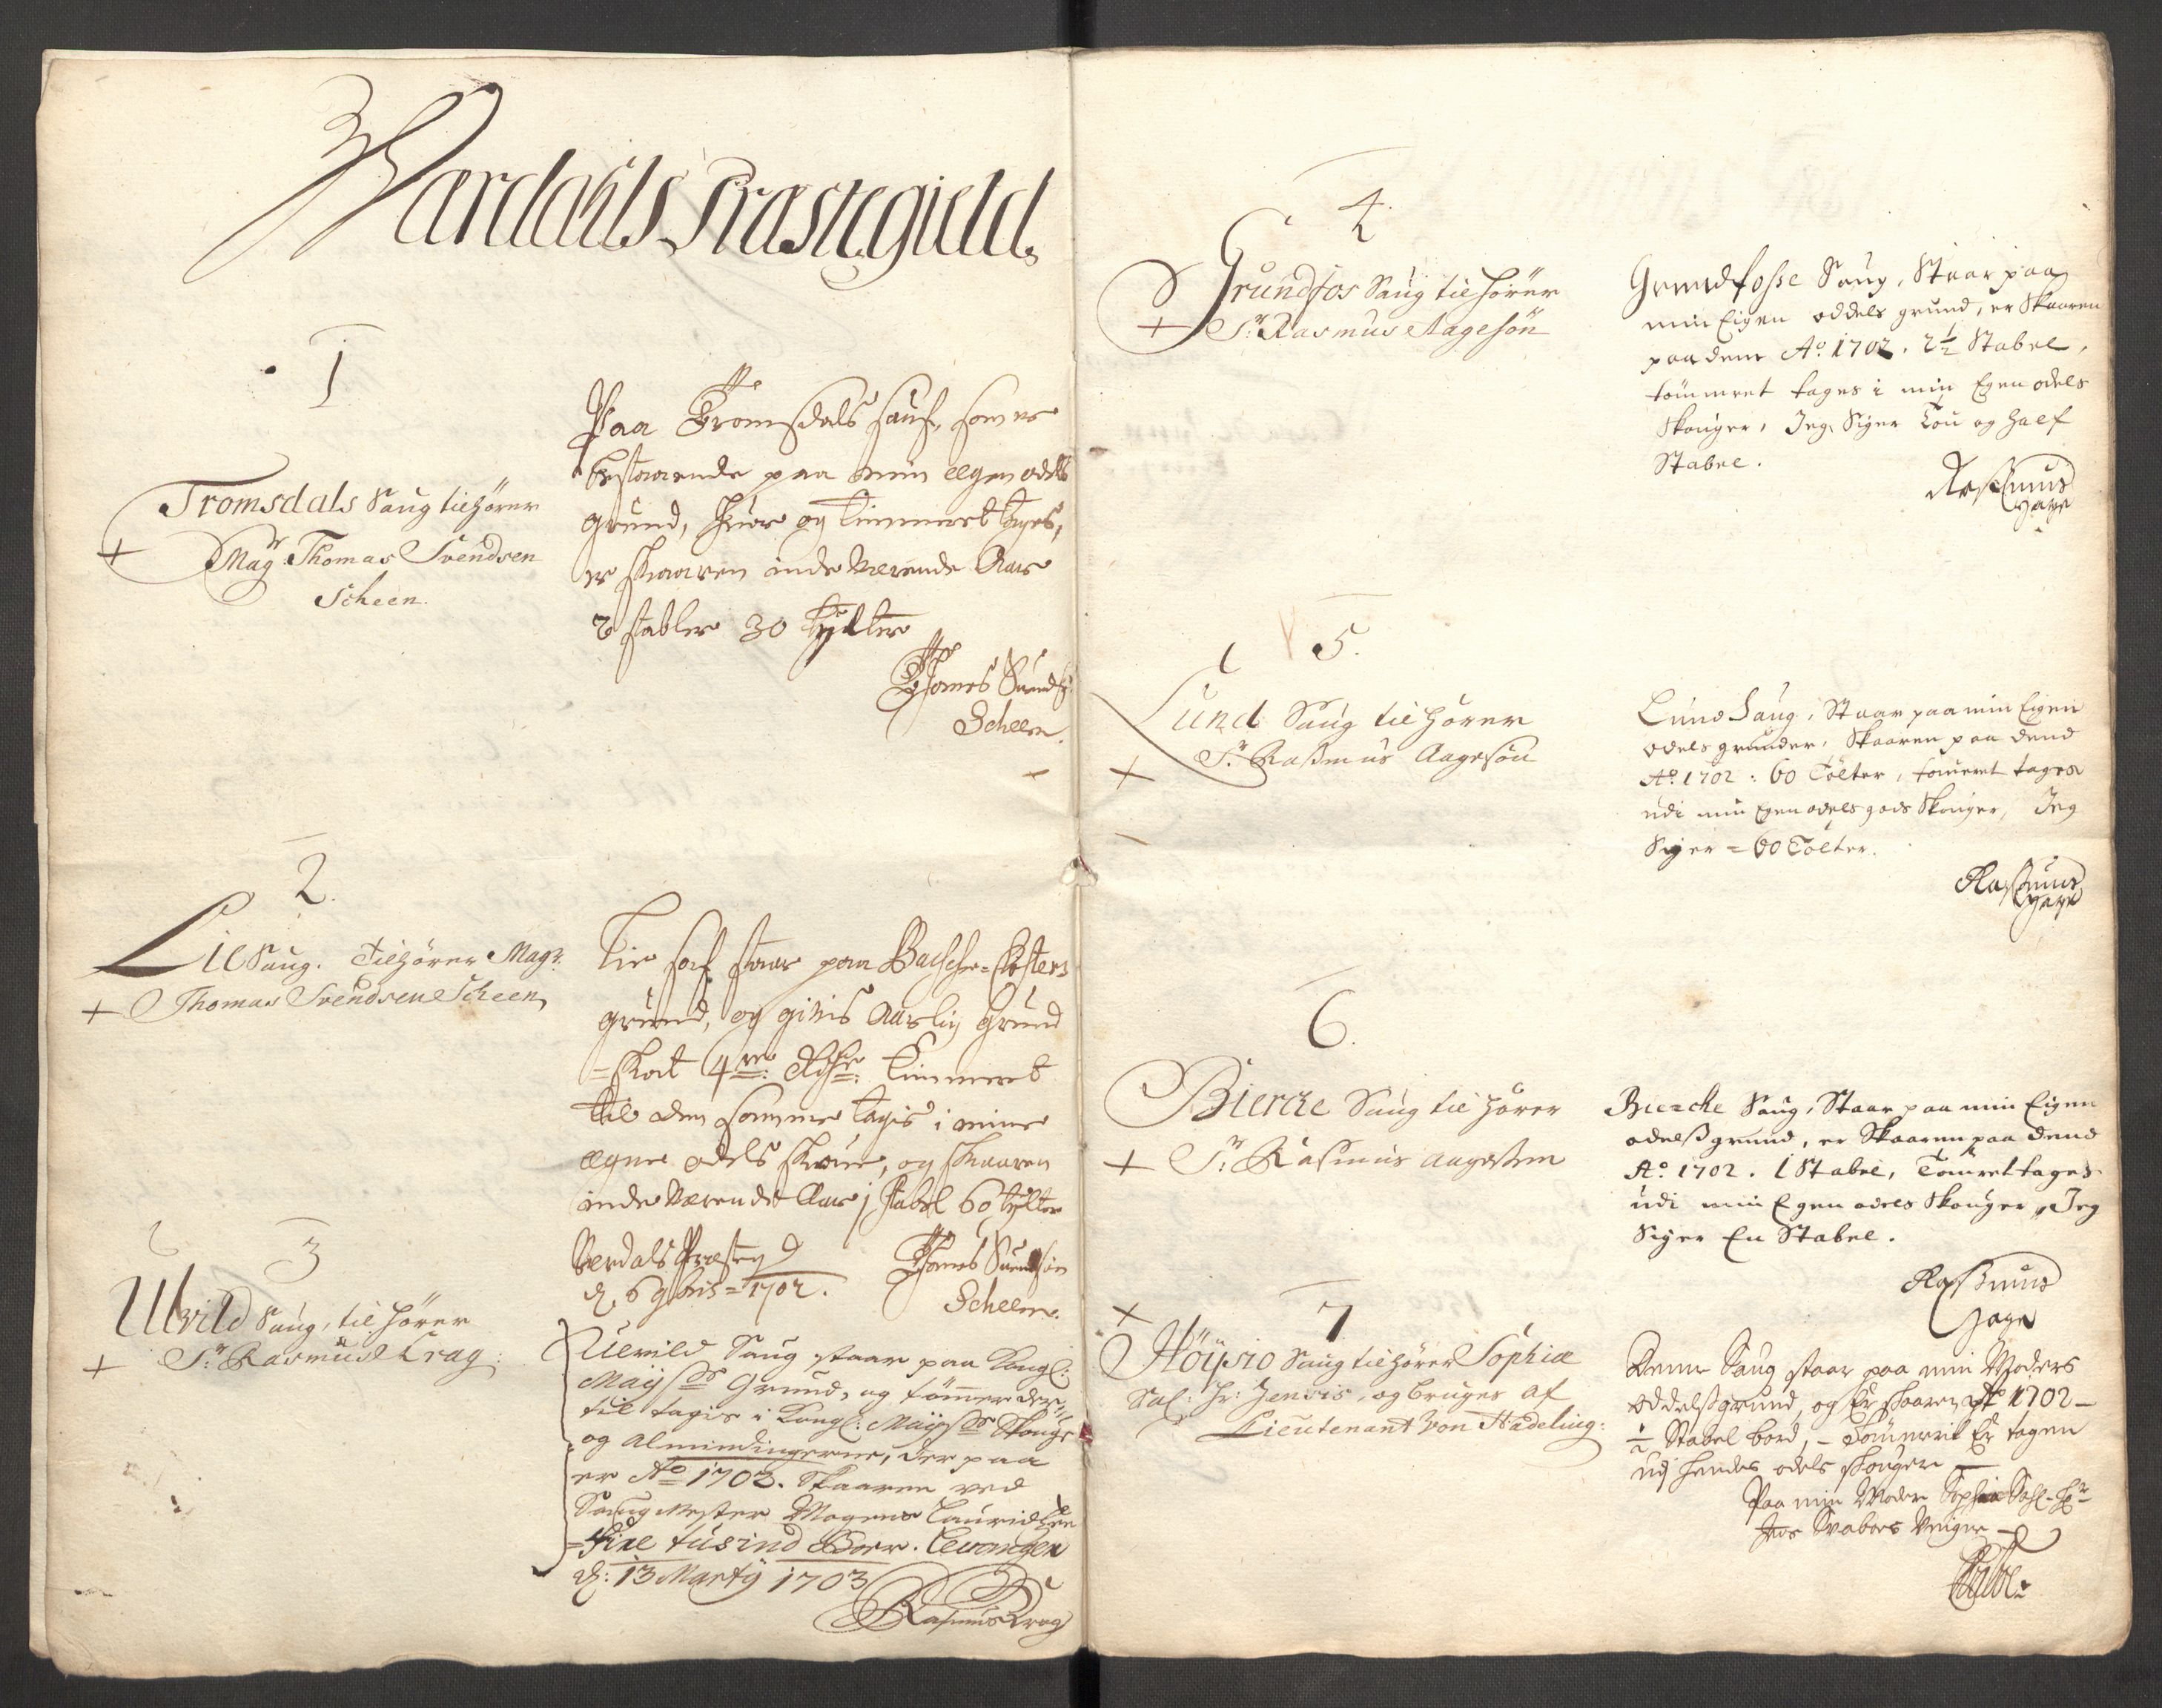 Wærdahls Præstegield
1
Tromsdals Saug tilhører
+ Magr. Thomas Svendsen
Scheen.
Paa Tromsdals sauf, som er
bestaaende paa min eegen odels
grund, huor og Timmeret tages,
er skaaren indeværende Aar
2 stabler 30 tylter
Thomes Suends:
Scheen.
2.
Lie Saug. tilhører Magr.
+ Thomas Svendsen Scheen
Lie sauf staar paa Bachche-Closters
grund, og givis Aarlig Grund
=skat 4re Rdhr: Timmeret
til den somme tagis i mine
egne odels skoue, og skaaren
indeværende Aar 1 stabel 60 tylter
Verdals Præsteg
d. 6 9bris = 1702.
Thomes Suendsøn
Scheen.
3
Ulvild Saug, til hører
+ Sr. Rasmus Krag
Uevild Saug staar paa Kongl:
Mayst:s Grund, og tømmer der
til tagis i Kongl: Mayst:s Skouge
og Almindingerne, der paa
er Ao 1702. Skaaren ved
Saugmester Mogens Lauridsen
=Fire tusind Boer. Levanger
d: 13 Marty 1703
Rasmus Krag
4.
Grundfos Saug tilhører
+ Sr. Rasmus Aagesøn
Grundfosse Saug, Staar paa
min Eigen oddels grund, er Skaaren
paa dem Ao. 1702. 2½ Stabel,
tømmeret tages i min Egen odels
Skouger, Jeg Siger Tou og half
Stabel.
Rasmus
Hage
5.
Lund Saug tilhører
+ Sr. Rasmus Aagesøn
Lund Saug, Staar paa min Eigen
odels grunder, Skaaren paa dend
Ao. 1702: 60 Tolter, tømeret tages
udi min Egen odels gods Skouger, Jeg
Siger = 60 Tolter.
Rasmus
Hage
6.
Bierche Saug tilhører
+ Sr. Rasmus Aagesen
Bierche Saug, Staar paa min Eigen
odelss grund, er Skaaren paa dend
Ao. 1702. 1 Stabel, Tømret tages
udi min Egen odels Skouger, Jeg
Siger En Stabel.
Rasmus
Hage
7
+
Høysio Saug tilhører Sophia
Sal: Hr: Jensis, og bruges af
Lieutenant Von Hadeling:
Denne Saug staar paa min Moders
oddelss grund, og Er skaaren Ao 1702 –
½ Stabel bord, – Tømmerit Er tagen
udj hendes odels skouger –
Paa min Moder Sophia Sahl. Hr
Jens Veigne –